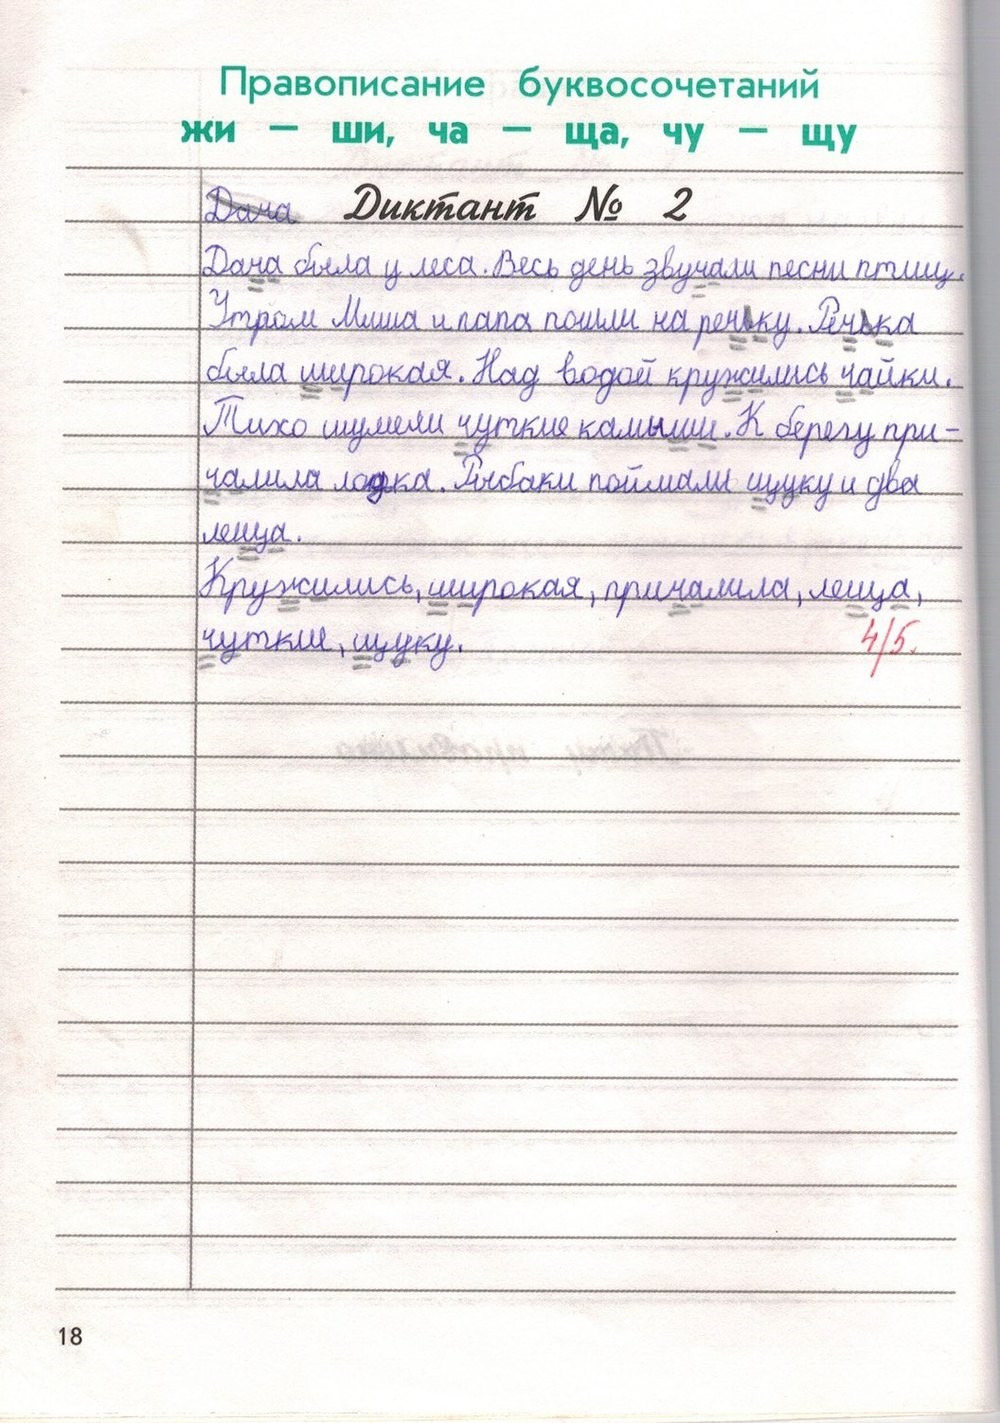 Правописание буквосочетаний
жи — ши, ча — ща, чу — щу
Дача Диктант № 2
Дача была у леса. Весь день звучали песни птиц.
Утром Миша и папа пошли на речьку. Речька
была широкая. Над водой кружились чайки.
Тихо шумели чуткие камыши. К берегу при-
чалила лодка. Рыбаки поймали щуку и два
леща.
Кружились, широкая, причалила, леща,
чуткие, щуку.
4/5.
18